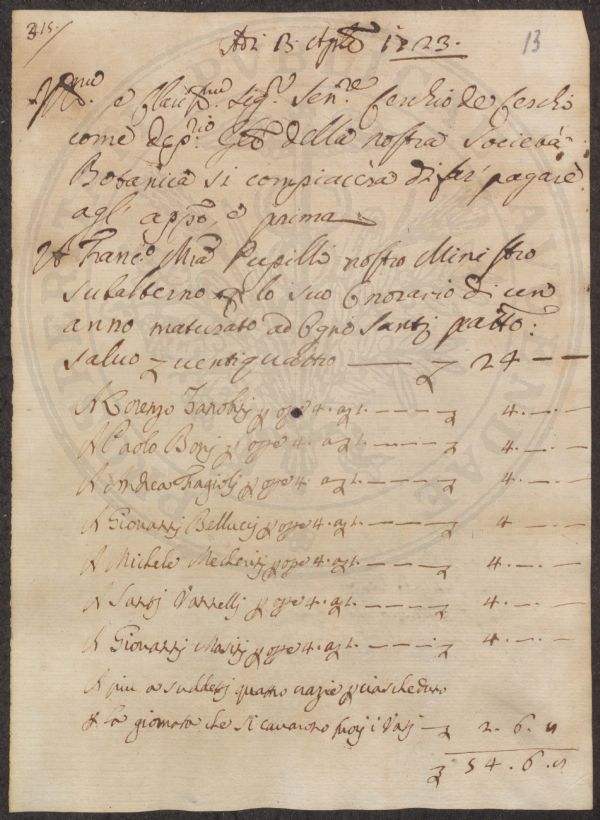 315.
Adi 13 Aple 1723.
13
Illmo. e Clarismo. Sigr. Senre. Cerchio de Cerchi
come deprio. Gle della nostra Società
Botanica si compiacerà di far pagare
agl' appo, e prima
A Franco. Mra Pupilli nostro Ministro
subalterno p lo suo Onorario di un
anno maturato ad Ogni Santi passto:
saluo ventiquattro — 24 — —
A Lorenzo p ope 4. agt. — — — 4. — . —
A Paolo Bonj p ope 4. agt. — — — 4. — . —
A Andrea Fagiolj p ope 4. agt. — — — 4. — . —
A Giovannj Belluccj p ope 4. agt. — — — 4 — . —
A Michele p ope 4. agt. — — — 4. — . —
A Santj Vannellj p ope 4. agt. — — — 4. — . —
A Giovannj Masinj p ope 4. agt. — — — 4. — . —
A piu a suddetj quatro crazie p ciascheduno
p la giornata che si cavarono fuorj i Vasj — 2. 6. 8
54. 6. 8